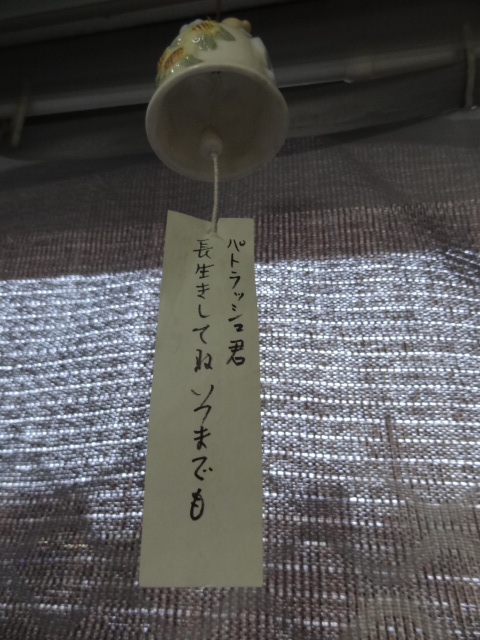 パトラッシュ君
長生きしてねいつまでも